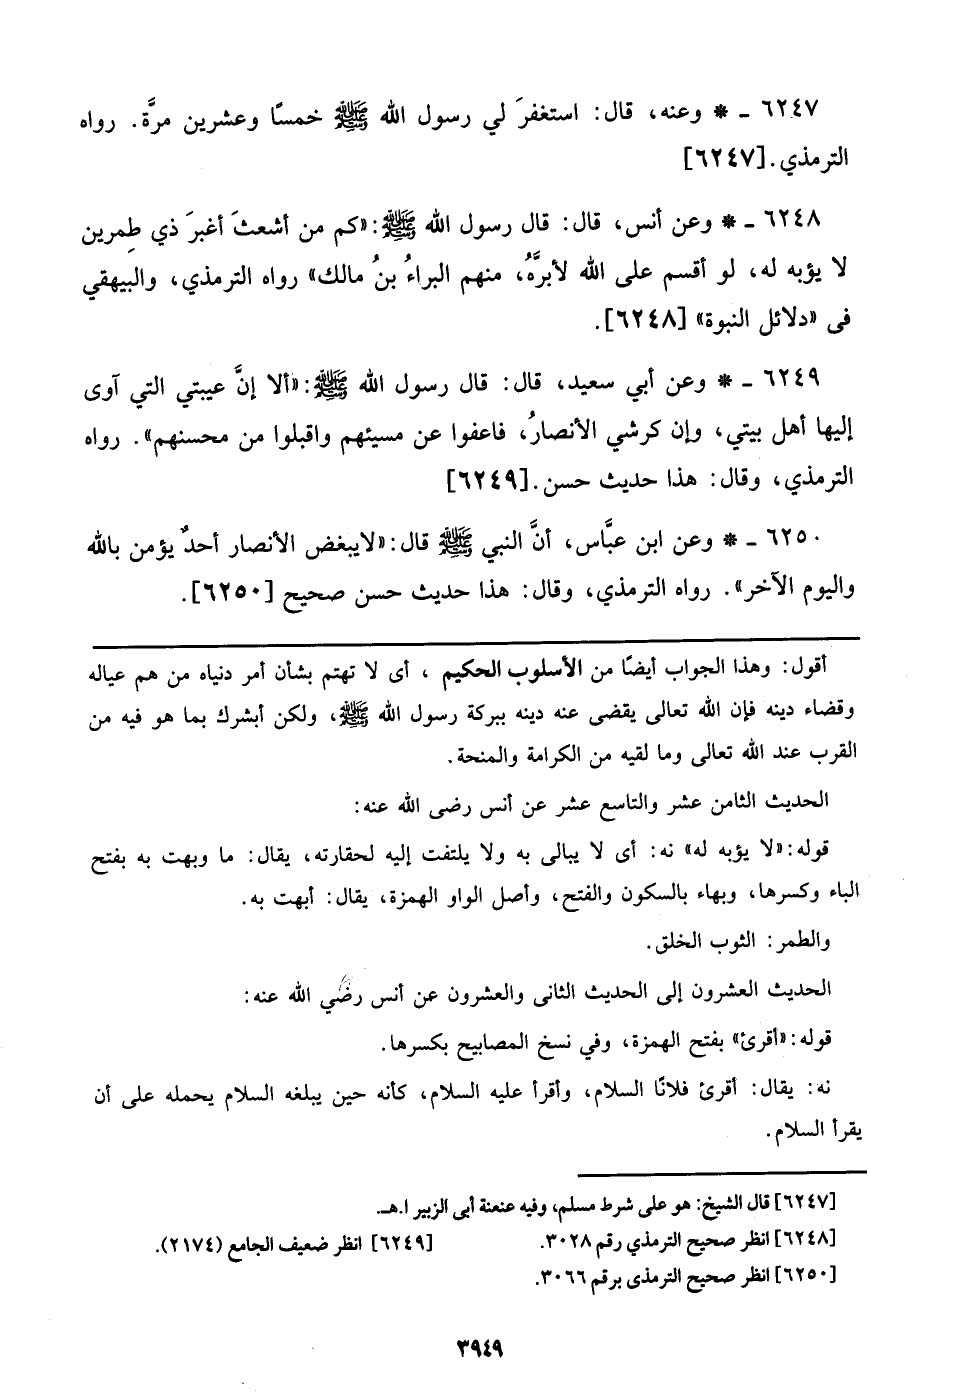 ٦٢٤٧ ـ * وعنه، قال: استغفرَ لي رسول الله ﷺ خمسًا وعشرين مرَّة. رواه
الترمذي.[٦٢٤٧]
٦٢٤٨ ـ * وعن أنس، قال: قال رسول الله ﷺ:«كم من أشعثَ أغبرَ ذي طِمرين
لا يؤبه له، لو أقسم على الله لأبرَّهُ، منهم البراءُ بنُ مالك» رواه الترمذي، والبيهقي
فى «دلائل النبوة» [٦٢٤٨].
٦٢٤٩ ـ * وعن أبي سعيد، قال: قال رسول الله ﷺ:«ألا إنَّ عيبتي التي آوى
إليها أهل بيتي، وإن كرشي الأنصارُ، فاعفوا عن مسيئهم واقبلوا من محسنهم». رواه
الترمذي، وقال: هذا حديث حسن.[٦٢٤٩]
٦٢٥٠ ـ * وعن ابن عبَّاس، أنَّ النبي ﷺ قال:«لايبغض الأنصار أحدٌ يؤمن بالله
واليوم الآخر». رواه الترمذي، وقال: هذا حديث حسن صحيح [٦٢٥٠].
أقول: وهذا الجواب أيضًا من الأسلوب الحكيم ، أى لا تهتم بشأن أمر دنياه من هم عياله
وقضاء دينه فإن الله تعالى يقضى عنه دينه ببركة رسول الله ﷺ، ولكن أبشرك بما هو فيه من
القرب عند الله تعالى وما لقيه من الكرامة والمنحة.
الحديث الثامن عشر والتاسع عشر عن أنس رضى الله عنه:
قوله:«لا يؤبه له» نه: أى لا يبالى به ولا يلتفت إليه لحقارته، يقال: ما وبهت به بفتح
الباء وكسرها، وبهاء بالسكون والفتح، وأصل الواو الهمزة، يقال: أبهت به.
والطمر: الثوب الخلق.
الحديث العشرون إلى الحديث الثانى والعشرون عن أنس رضي الله عنه:
قوله:«أقرئ» بفتح الهمزة، وفي نسخ المصابيح بكسرها.
نه: يقال: أقرئ فلانًا السلام، وأقرأ عليه السلام، كأنه حين يبلغه السلام يحمله على أن
يقرأ السلام.
[٦٢٤٧] قال الشيخ: هو على شرط مسلم، وفيه عنعنة أبى الزبير ا.هـ.
[٦٢٤٨] انظر صحيح الترمذي رقم ٣٠٢٨. [٦٢٤٩] انظر ضعيف الجامع (٢١٧٤).
[٦٢٥٠] انظر صحيح الترمذى برقم ٣٠٦٦.
٣٩٤٩